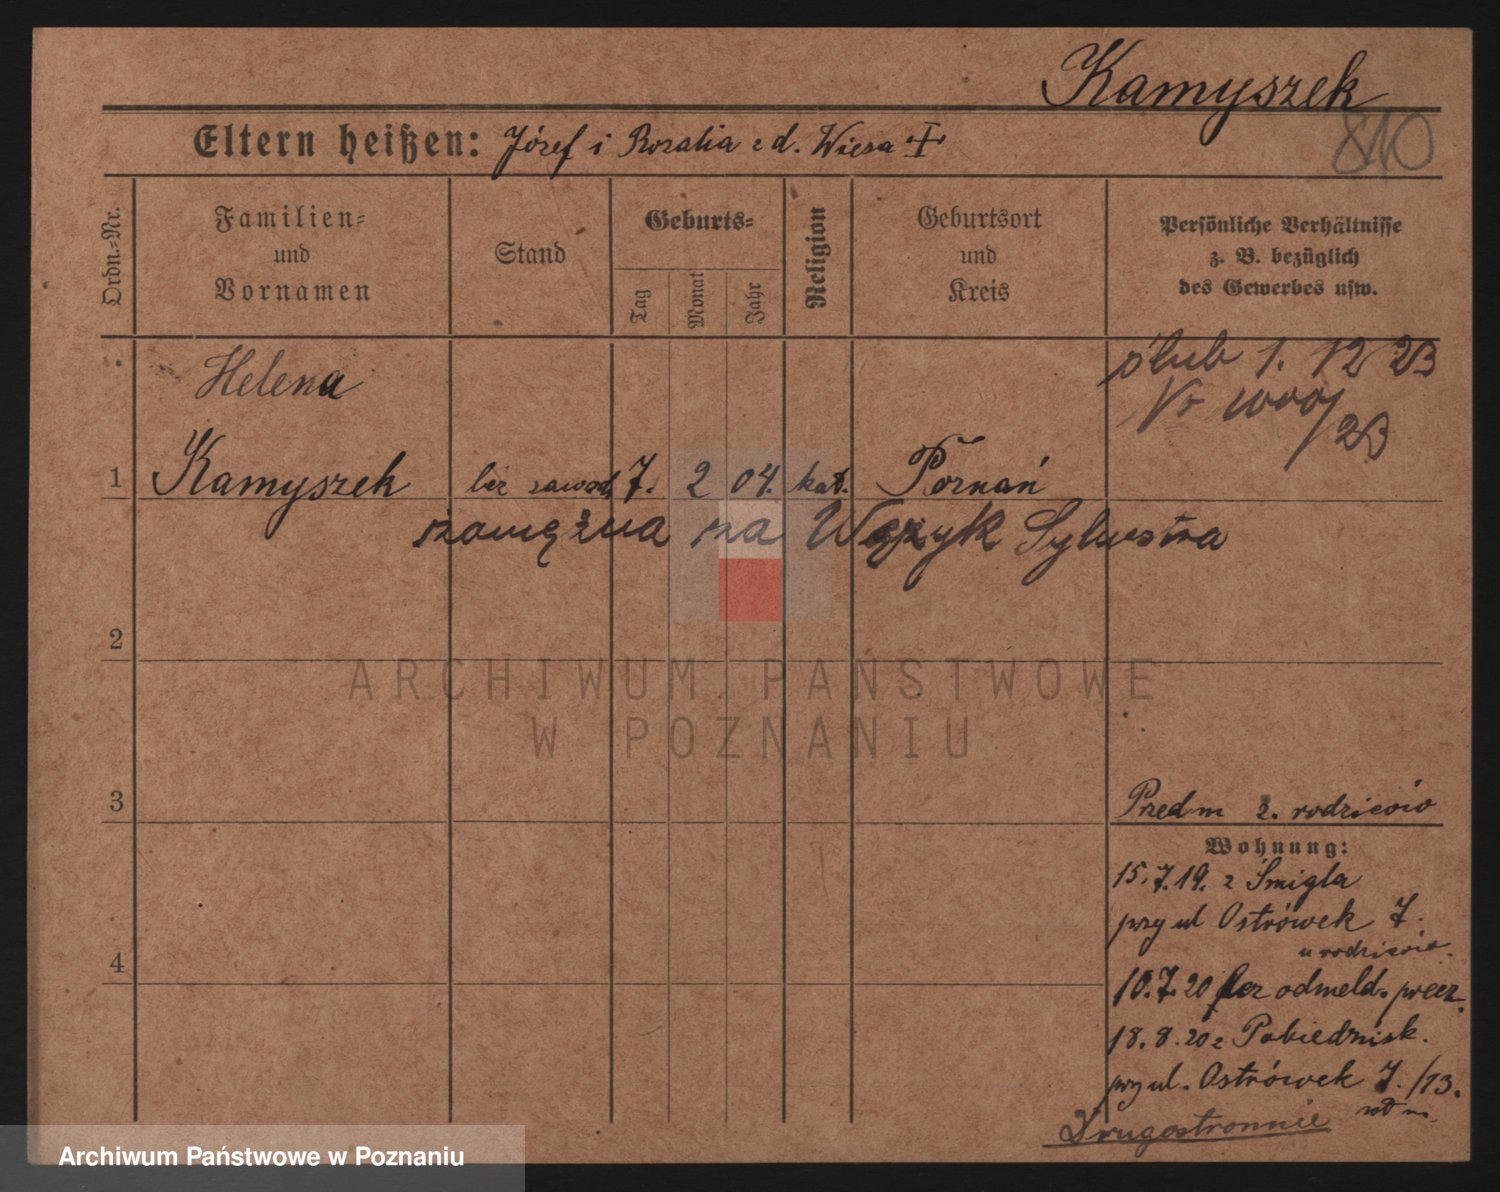 Kamyszek
810
Eltern heißen: Józef i Rozalia z d. Wiesa
Ordn.=Nr.
Familien=
und
Vornamen
Stand
Geburts=
Tag
Monat
Jahr
Religion
Geburtsort
und
Kreis
Persönliche Verhältnisse
z. B. bezüglich
des Gewerbes usw.
ślub 1. 12 23
Nr 1000/23
Helena
1 Kamyszek bez zawod. 7. 2 04. kat. Poznań
zamężna za Wężyk Sylwestra
2
ARCHIWUM PAŃSTWOWE
W POZNANIU
3
Przedm z. rodziców
Wohnung:
15.7.19. z Śmigla
przy ul Ostrówek 7.
u rodziców.
4
10.7.20 bez odmeld.
18.8.20 z Pobiedzisk.
przy ul. Ostrówek 7./13.
Drugostronnie
Archiwum Państwowe w Poznaniu